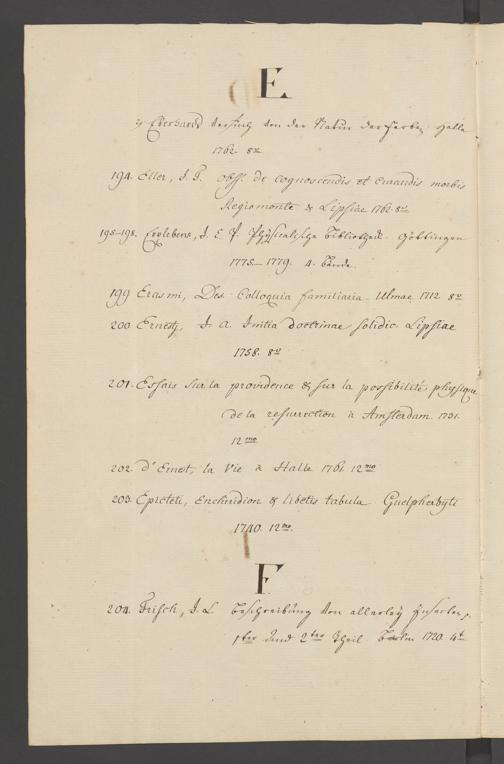 E
Eberhard Versuch von der Natur der Farben Halle
1762. 8vo
194. Eller, J. T. Obss. de cognoscendis et curandis morbis
Regiomonte & Lipsiae 1762. 8vo
195-198. Erxlebens, J. C. P. Physicalische Bibliotheck. Göttingen
1775-1779. 4. Bände.
199 Erasmi, Des. Colloquia familiaria. Ulmae. 1712. 8vo
200. Ernesti, J. A. Initia doctrinae solidic. Lipsiae
1758. 8vo
201. Essais sur la providence & sur la possibilité physique
de la resurrection à Amsterdam. 1731.
12mo
202. d'Emet, la Vie à Halle 1761. 12mo
203. Epicteti, Enchiridion & Cebetis tabula. Guelpherbyti
1740. 12mo.
F
204. Frisch, J. L. Beschreibung von allerley Insecten,
1ter und 2ter Theil Berlin 1720 4t